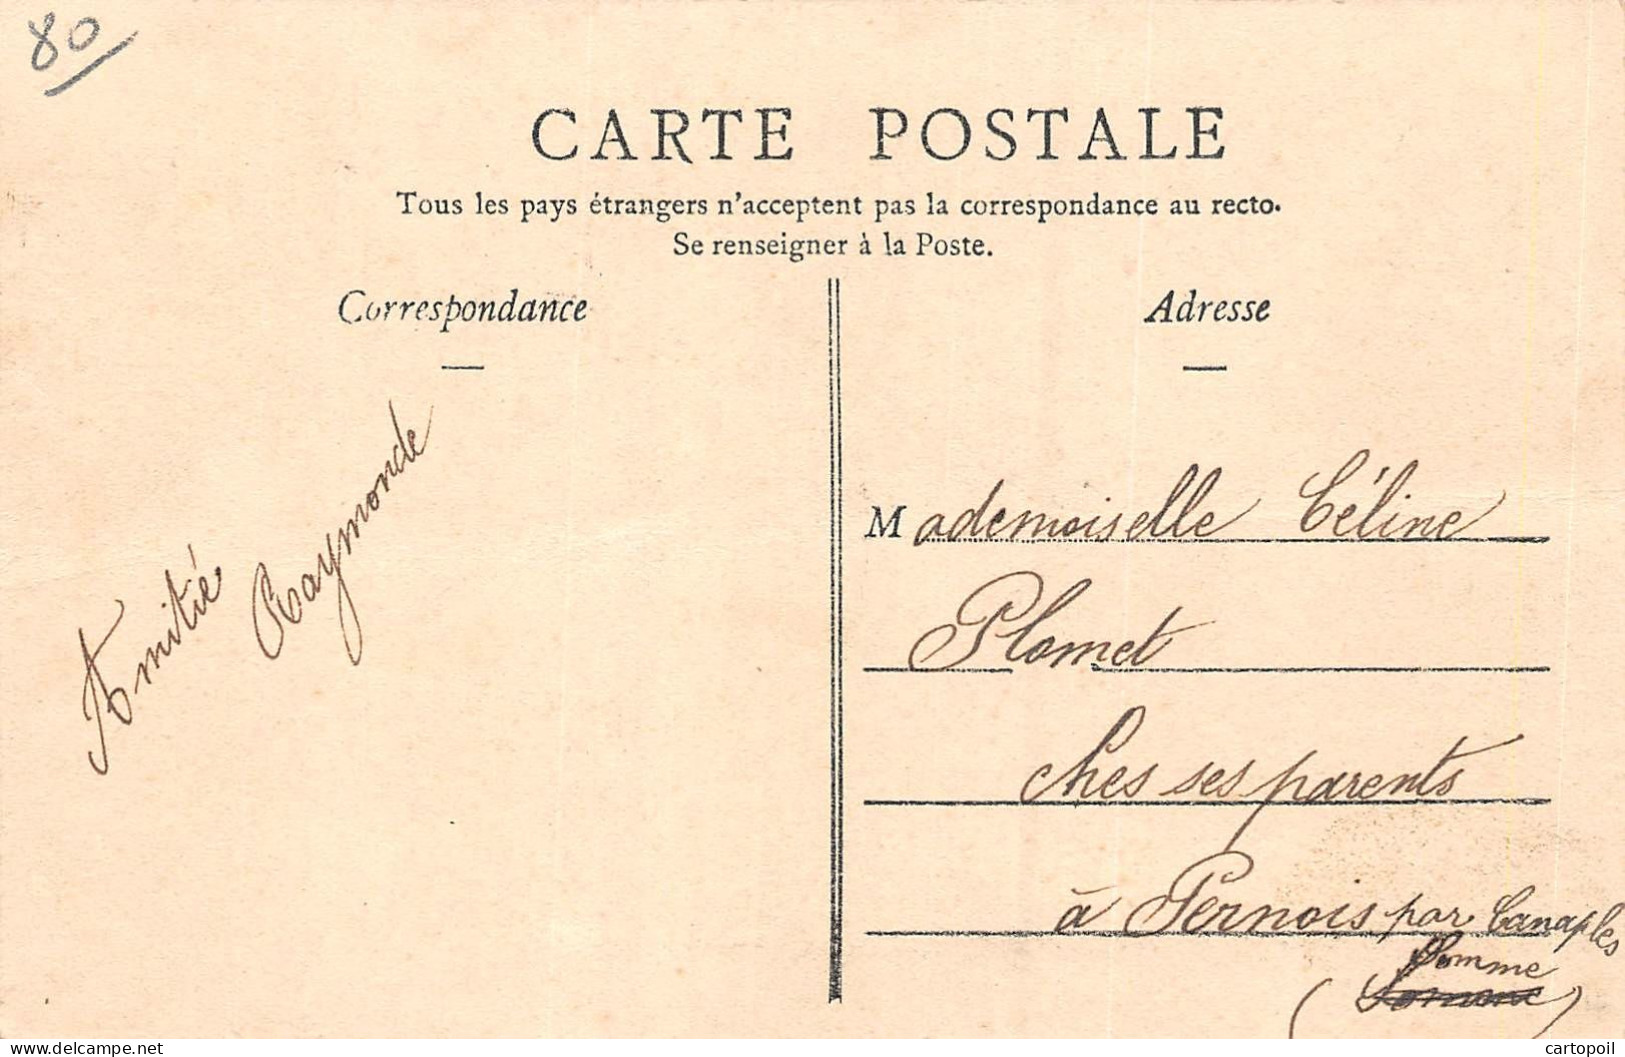 80
CARTE POSTALE
Tous les pays étrangers n'acceptent pas la correspondance au recto.
Se renseigner à la Poste.
Correspondance
Amitié
Raymonde
Adresse
Mademoiselle Céline
Plomet
ches ses parents
à Pernois par Canaples
Somme
(Somme)
delcampe.net
cartopoil